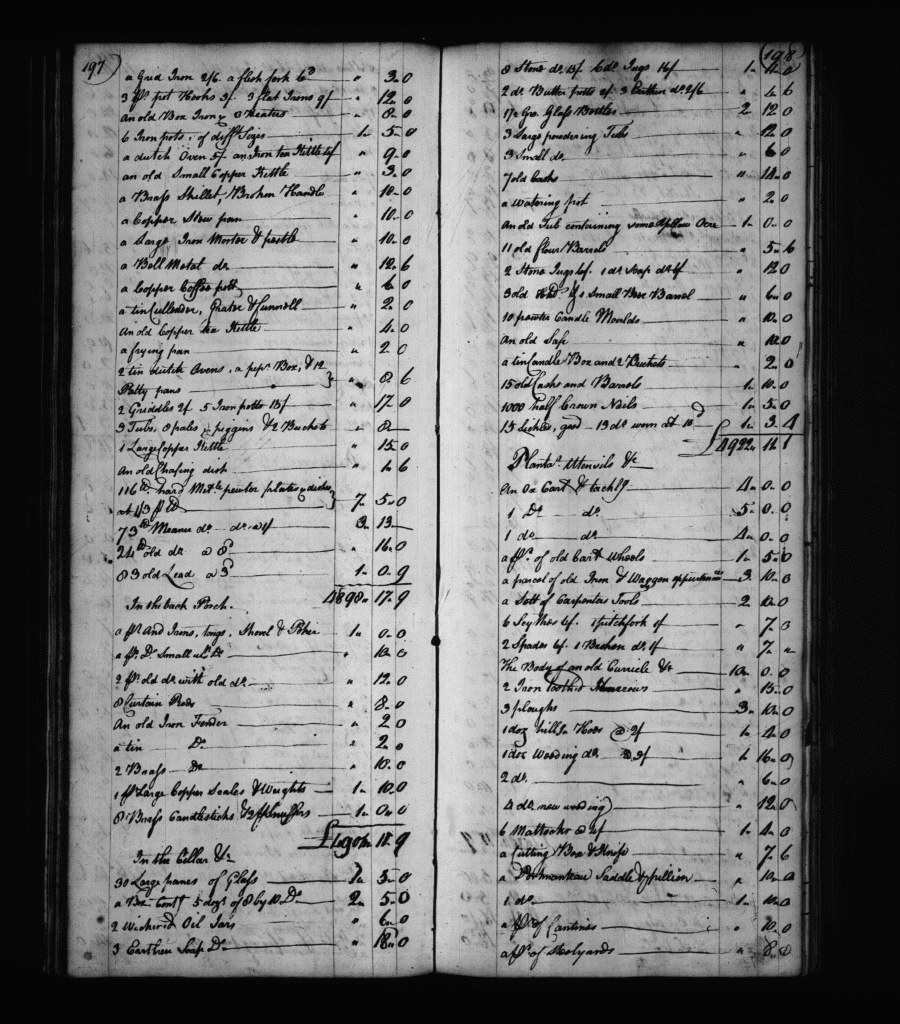 197
a Grid Iron 2/6 a flesh fork 6d " 3. 0
3 pr pot Hooks 3/. 3 flat Irons 9/ " 12. 0
An old Box Iron & Heaters " 8. 0
6 Iron pots. of difft Sizes 1. 5. 0
a dutch Oven 5/ an Iron tea Kettle 4/ " 9. 0
an old Small Copper Kettle " 3. 0
a Brass Skillet, Broken Handle " 10. 0
a Copper Stew pan " 10. 0
a Large Iron Morter & pestle " 10. 0
a Bell Metal do " 12. 6
a Copper Coffee pott " 6. 0
a tin Cullender, Grater & funnell " 2. 0
An old Copper tea Kettle " 4. 0
a frying pan " 2. 0
2 tin dutch Ovens, a pepr Box, & 12
Patty pans " 8. 6
2 Griddles 2/ 5 Iron potts 15/ " 17. 0
3 Tubs, 8 pales, piggins & 2 Buckets " 8
1 Large Copper Kettle " 15. 0
An old Chafing dish " 1. 6
116 lb. hard Metle pewter plates & dishes
at 1/3 p lb 7. 5. 0
73 lb Meaner do do a 1/ 3. 13
24 lb old do a 8d " 16. 0
83 old Lead a 3d 1. 0. 9
4898. 17. 9
In the back Porch.
a pr And Irons, tongs, Shovel & Poker 1. 0. 0
a pr Do Small wth Do " 10. 0
2 pr old do with old do " 12. 0
8 Curtain Rods " 8. 0
An old Iron Fender " 2. 0
a tin Do " 2. 0
2 Brass Do " 10. 0
1 pr Large Copper Scales & Weights 1. 10. 0
8 Brass Candlesticks & 2 pr Snuffers 1. 0. 0
In the Cellar &c
30 Large panes of Glass 1. 3. 0
a Box Contg 5 doz of 8 by 10 Do 2. 5. 0
2 Wickered Oil Jars " 6. 0
3 Earthen Soap Do " 18. 0
198
8 Stone do 15/ 6 do Jugs 16/ 1. 11. 0
2 do Butter potts 4/ 3 Earthen do 2/6 " 6. 6
17/2 Gro. Glass Bottles 2. 12. 0
3 Large powdering Tubs " 12. 0
3 Small do " 6. 0
7 old Casks " 14. 0
a Watering pot " 2. 0
An old Tub containing some Yellow Ocre 1. 0. 0
11 old flour Barrels " 5. 6
2 Stone Jugs 6/. 1 do Soap do 6/ " 12. 0
3 old Hhds & 1 Small Beer Barrel " 6. 0
10 pewter Candle Moulds " 10. 0
An old Safe " 10. 0
a tin Candle Box and 2 Buckets " 2. 0
15 old Casks and Barrels 1. 10. 0
1000 half Crown Nails 1. 5. 0
15 Sickles, good 13 do worn at 10d 1. 3. 4
£4922. 11. 1
Plantan Utensils &c
An Ox Cart & tackle 4. 0. 0
1 Do do 5. 0. 0
1 do do 4. 0. 0
a pr. of old Cart Wheels 1. 5. 0
a parcel of old Iron & Waggon appurtenances 3. 10. 0
a Sett of Carpenters Tools 2. 10. 0
6 Scythes 6/. 1 pitchfork 1/ " 7. 0
2 Spades 6/. 1 Broken do 1/ " 7. "
The Body of an old Curricle &c 10. 0. 0
2 Iron toothed Harrows " 15. 0
3 ploughs 3. 10. 0
1 doz hilling Hoes @ 2/ 1. 4. 0
1 doz Weeding do 1. 16. 0
2 do " 6. 0
4 do new weeding " 12. 0
6 Mattocks @ 4/ 1. 4. 0
a Cutting Box & Knife " 7. 6
a Portmanteau Saddle & pillion " 10. 0
1 do 1. 10. 0
a pr of Cantines " 10. 0
a pr. of Stelyards " 8. 0